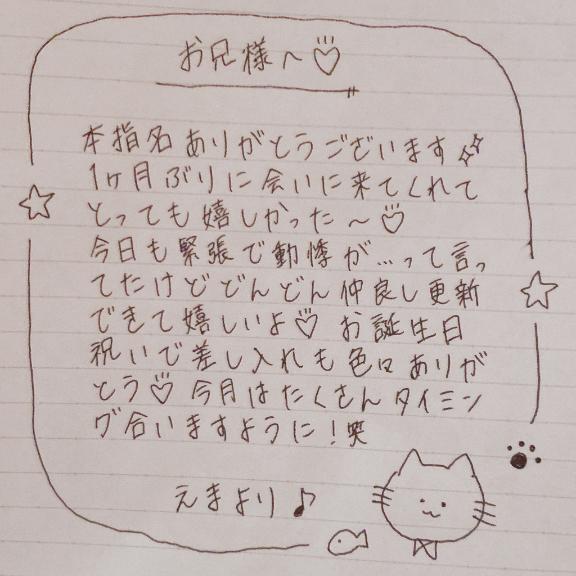 お兄様〜♡
本指名ありがとうございます
1ヶ月ぶりに会いに来てくれて
とっても嬉しかった〜♡
今日も緊張で動悸が…って言っ
てたけどどんどん仲良し更新
できて嬉しいよ♡ お誕生日
祝いで差し入れも色々ありが
とう♡ 今月はたくさんタイミン
グ合いますように!笑
えまより♪